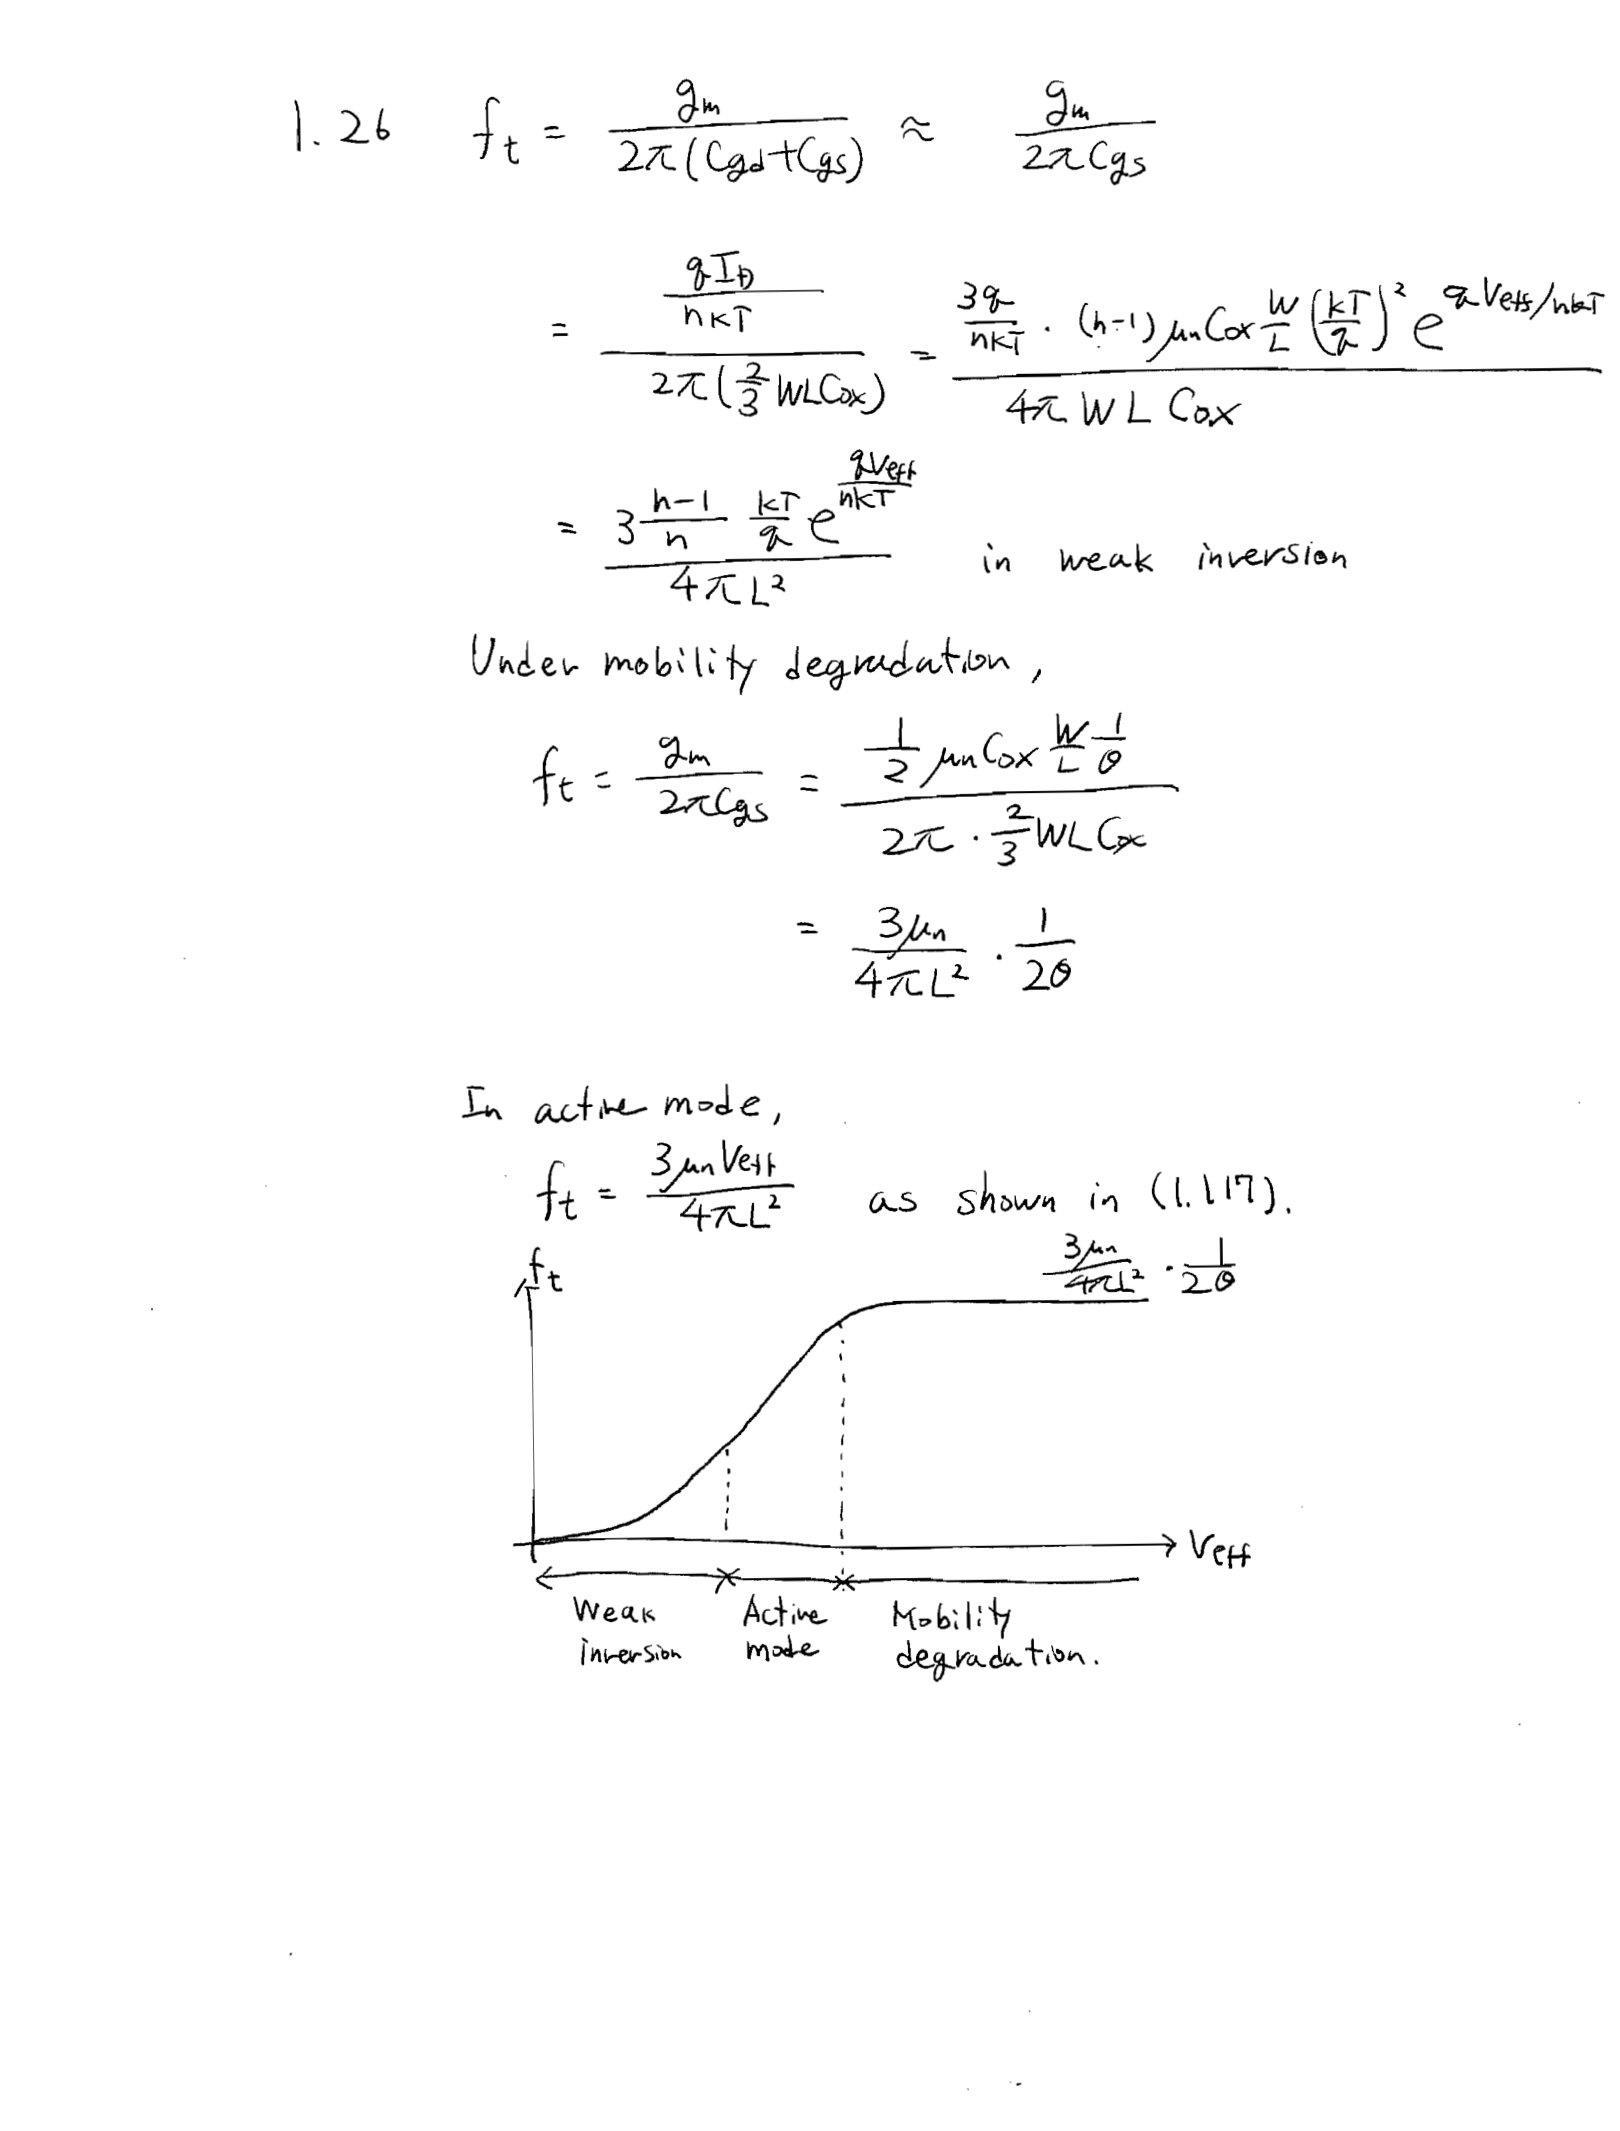 1.26 ft = gm / 2π(Cgd+Cgs) ≈ gm / 2πCgs
= (qID / nKT) / 2π(2/3 WLCox) = (3q/nKT · (n-1) μnCox W/L (kT/q)² e^(qVeff/nkT)) / 4π WL Cox
= (3 (n-1)/n kT/q e^(qVeff/nkT)) / 4πL² in weak inversion
Under mobility degradation,
ft = gm / 2πCgs = (1/2 μnCox W/L 1/θ) / (2π · 2/3 WLCox)
= 3μn / 4πL² · 1/2θ
In active mode,
ft = 3μnVeff / 4πL² as shown in (1.117).
3μn / 4πL² · 1/2θ
ft
Veff
Weak inversion
Active mode
Mobility degradation.